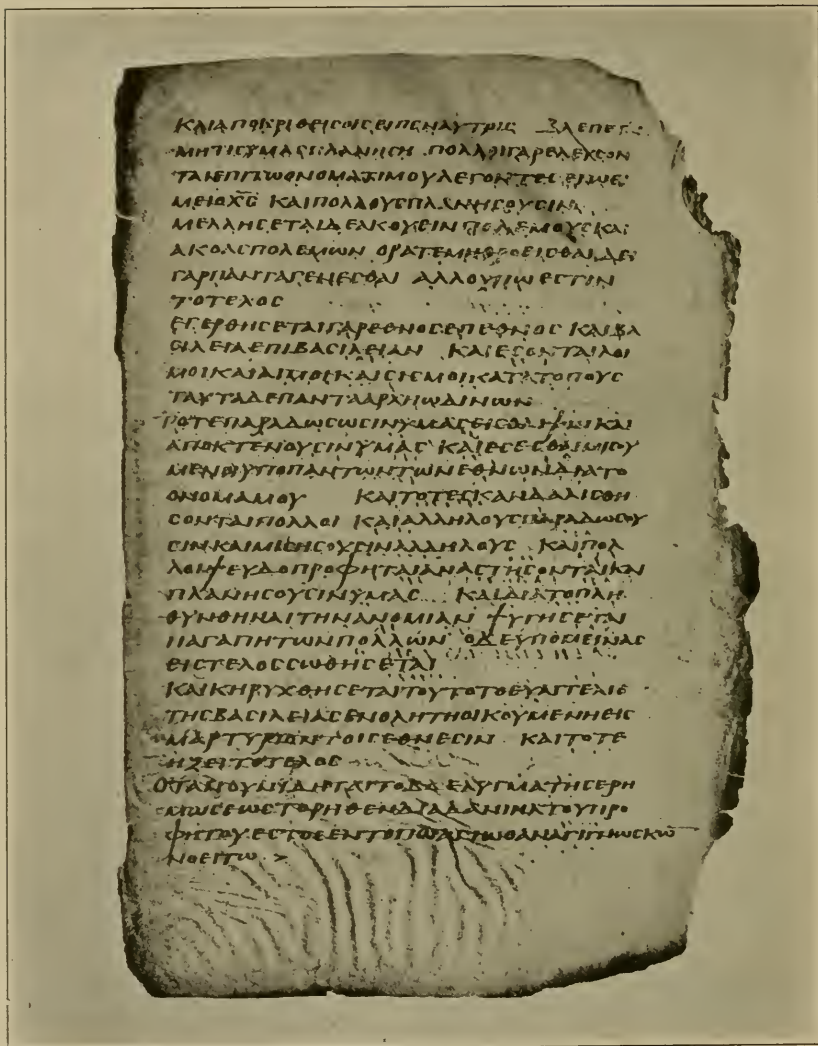 ΚΑΙΑΠΟΚΡΙΘΕΙCΟΙCΕΙΠΕΝΑΥΤΟΙC ΒΛΕΠΕΤΕ
ΜΗΤΙCΥΜΑCΠΛΑΝΗCΗ ΠΟΛΛΟΙΓΑΡΕΛΕΥCΟΝ
ΤΑΙΕΠΙΤΩΟΝΟΜΑΤΙΜΟΥΛΕΓΟΝΤΕCΕΓΩΕΙ
ΜΕΙΟΧ̅C̅ ΚΑΙΠΟΛΛΟΥCΠΛΑΝΗCΟΥCΙΝ
ΜΕΛΛΗCΕΤΑΙΔΕΑΚΟΥΕΙΝΠΟΛΕΜΟΥCΚΑΙ
ΑΚΟΑCΠΟΛΕΜΩΝ ΟΡΑΤΕΜΗΘΡΟΕΙCΘΑΙΔΕΙ
ΓΑΡΠΑΝΤΑΓΕΝΕCΘΑΙ ΑΛΛΟΥΠΩΕCΤΙΝ
ΤΟΤΕΛΟC
ΕΓΕΡΘΗCΕΤΑΙΓΑΡΕΘΝΟCΕΠΕΘΝΟC ΚΑΙΒΑ
CΙΛΕΙΑΕΠΙΒΑCΙΛΕΙΑΝ ΚΑΙΕCΟΝΤΑΙΛΟΙ
ΜΟΙΚΑΙΛΙΜΟΙΚΑΙCΙCΜΟΙΚΑΤΑΤΟΠΟΥC
ΤΑΥΤΑΔΕΠΑΝΤΑΑΡΧΗΩΔΙΝΩΝ
ΤΟΤΕΠΑΡΑΔΩCΩCΙΝΥΜΑCΕΙCΘΛΙΨΙΝΚΑΙ
ΑΠΟΚΤΕΝΟΥCΙΝΥΜΑC ΚΑΙΕCΕCΘΑΙΜΙCΟΥ
ΜΕΝΟΙΥΠΟΠΑΝΤΩΝΤΩΝΕΘΝΩΝΔΙΑΤΟ
ΟΝΟΜΑΜΟΥ ΚΑΙΤΟΤΕCΚΑΝΔΑΛΙCΘΗ
CΟΝΤΑΙΠΟΛΛΟΙ ΚΑΙΑΛΛΗΛΟΥCΠΑΡΑΔΩCΟΥ
CΙΝΚΑΙΜΙCΗCΟΥCΙΝΑΛΛΗΛΟΥC ΚΑΙΠΟΛ
ΛΟΙΨΕΥΔΟΠΡΟΦΗΤΑΙΑΝΑCΤΗCΟΝΤΑΙΚΑΙ
ΠΛΑΝΗCΟΥCΙΝΥΜΑC ΚΑΙΔΙΑΤΟΠΛΗ
ΘΥΝΘΗΝΑΙΤΗΝΑΝΟΜΙΑΝ ΨΥΓΗCΕΤΑΙ
ΗΑΓΑΠΗΤΩΝΠΟΛΛΩΝ ΟΔΕΥΠΟΜΕΙΝΑC
ΕΙCΤΕΛΟCCΩΘΗCΕΤΑΙ
ΚΑΙΚΗΡΥΧΘΗCΕΤΑΙΤΟΥΤΟΤΟΕΥΑΓΓΕΛΙΟ
ΤΗCΒΑCΙΛΕΙΑCΕΝΟΛΗΤΗΟΙΚΟΥΜΕΝΗΕΙC
ΜΑΡΤΥΡΙΟΝΤΟΙCΕΘΝΕCΙΝ ΚΑΙΤΟΤΕ
ΗΞΕΙΤΟΤΕΛΟC
ΟΤΑΝΟΥΝΥΔΗΤΑΙΤΟΒΔΕΛΥΓΜΑΤΗCΕΡΗ
ΜΩCΕΩCΤΟΡΗΘΕΝΔΙΑΔΑΝΙΗΛΤΟΥΠΡΟ
ΦΗΤΟΥΕCΤΟCΕΝΤΟΠΩΑΓΙΩΟΑΝΑΓΙΓΝΩCΚΩ
ΝΟΕΙΤΩ >